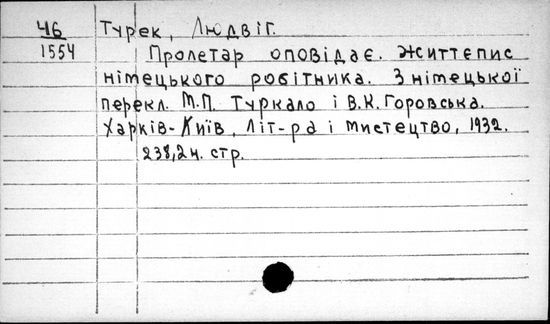 46 Турек, Людвіг.
1554 Пролетар оповідає. Життєпис
німецького робітника. З німецької
перекл. М.П. Туркало і В.К. Горовська.
Харків-Київ, Літ-ра і мистецтво, 1932.
238,2н. стр.